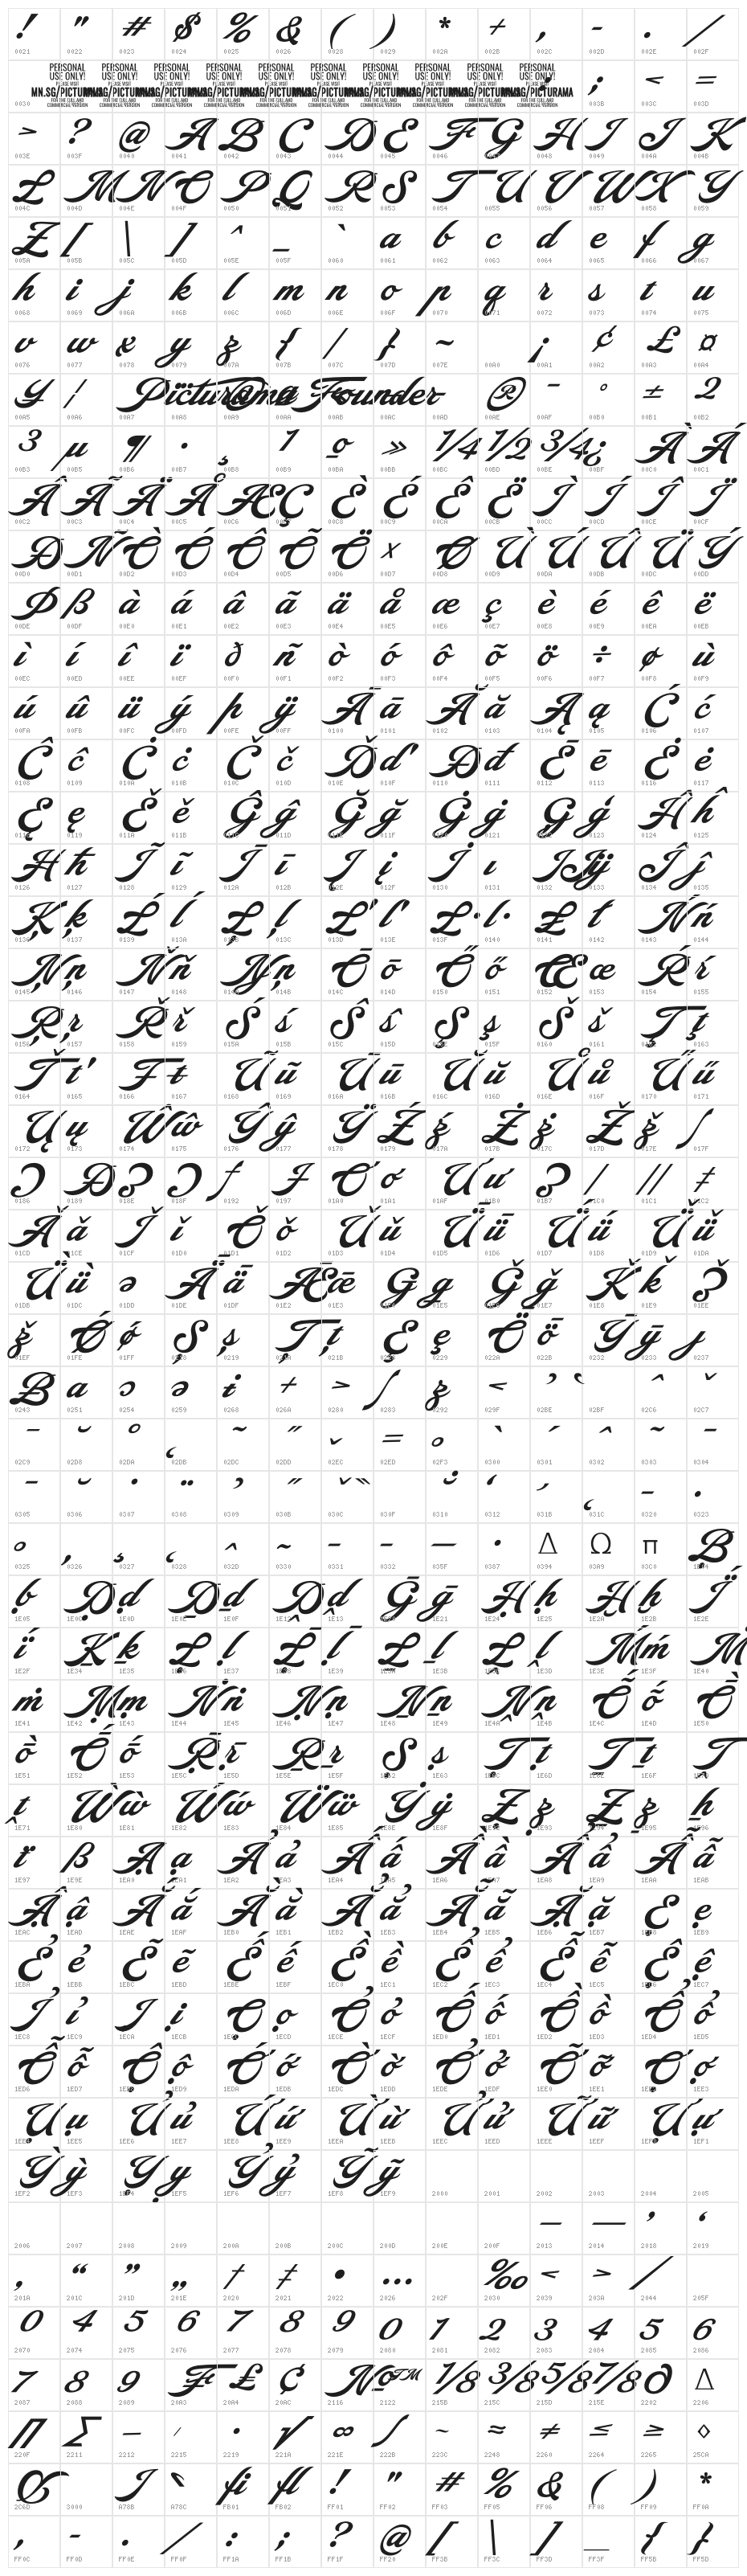 ! " # $ % & ( ) * + , - . /
0021 0022 0023 0024 0025 0026 0028 0029 002A 002B 002C 002D 002E 002F
PERSONAL USE ONLY! PLEASE VISIT MN.SG/PICTURAMA FOR THE FULL AND COMMERCIAL VERSION ; < =
0030 003B 003C 003D
> ? @ A B C D E F G H I J K
003E 003F 0040 0041 0042 0043 0044 0045 0046 0048 0049 004A 004B
L M N O P Q R S T U V W X Y
004C 004D 004E 004F 0050 0051 0052 0053 0054 0055 0056 0057 0058 0059
Z [ \ ] ^ _ ` a b c d e f g
005A 005B 005C 005D 005E 005F 0060 0061 0062 0063 0064 0065 0066 0067
h i j k l m n o p q r s t u
0068 0069 006A 006B 006C 006D 006E 006F 0070 0071 0072 0073 0074 0075
v w x y z { / } ~ ¡ ¢ £ ¤
0076 0077 0078 0079 007A 007B 007C 007D 007E 00A0 00A1 00A2 00A3 00A4
¥ ¦ Picturama Founder ® ¯ ° ± 2
00A5 00A6 00A7 00A8 00A9 00AA 00AB 00AC 00AD 00AE 00AF 00B0 00B1 00B2
3 µ ¶ · ¸ 1 º » 1/4 1/2 3/4 ¿ À Á
00B3 00B5 00B6 00B7 00B8 00B9 00BA 00BB 00BC 00BD 00BE 00BF 00C0 00C1
Â Ã Ä Å Æ Ç È É Ê Ë Ì Í Î Ï
00C2 00C3 00C4 00C5 00C6 00C8 00C9 00CA 00CB 00CC 00CD 00CE 00CF
Ð Ñ Ò Ó Ô Õ Ö × Ø Ù Ú Û Ü Ý
00D0 00D1 00D2 00D3 00D4 00D5 00D6 00D7 00D8 00D9 00DA 00DB 00DC 00DD
Þ ß à á â ã ä å æ ç è é ê ë
00DE 00DF 00E0 00E1 00E2 00E3 00E4 00E5 00E6 00E7 00E8 00E9 00EA 00EB
ì í î ï ð ñ ò ó ô õ ö ÷ ø ù
00EC 00ED 00EE 00EF 00F0 00F1 00F2 00F3 00F4 00F5 00F6 00F7 00F8 00F9
ú û ü ý þ ÿ Ā ā Ă ă Ą ą Ć ć
00FA 00FB 00FC 00FD 00FE 00FF 0100 0101 0102 0103 0104 0105 0106 0107
Ĉ ĉ Ċ ċ Č č Ď ď Đ đ Ē ē Ė ė
0108 0109 010A 010B 010C 010D 010E 010F 0110 0111 0112 0113 0116 0117
Ę ę Ě ě Ĝ ĝ Ğ ğ Ġ ġ Ģ ģ Ĥ ĥ
0119 011A 011B 011D 011F 0121 0123 0124 0125
Ħ ħ Ĩ ĩ Ī ī Į į İ ı Ĳ ĳ Ĵ ĵ
0126 0127 0128 0129 012A 012B 012E 012F 0130 0131 0132 0133 0134 0135
Ķ ķ Ĺ ĺ Ļ ļ Ľ ľ Ŀ ŀ Ł ł Ń ń
0137 0139 013A 013C 013D 013E 013F 0140 0141 0142 0143 0144
Ņ ņ Ň ň Ŋ ŋ Ō ō Ő ő Œ œ Ŕ ŕ
0145 0146 0147 0148 014B 014C 014D 0150 0151 0152 0153 0154 0155
Ŗ ŗ Ř ř Ś ś Ŝ ŝ Ş ş Š š Ţ ţ
0157 0158 0159 015A 015B 015C 015D 015F 0160 0161 0163
Ť ť Ŧ ŧ Ũ ũ Ū ū Ŭ ŭ Ů ů Ű ű
0164 0165 0166 0167 0168 0169 016A 016B 016C 016D 016E 016F 0170 0171
Ų ų Ŵ ŵ Ŷ ŷ Ÿ Ź ź Ż ż Ž ž ſ
0172 0173 0174 0175 0176 0177 0178 0179 017A 017B 017C 017D 017E 017F
Ɔ Ɖ Ǝ Ə ƒ Ɨ Ơ ơ Ư ư Ʒ ǀ ǁ ǂ
0186 0189 018E 018F 0192 0197 01A0 01A1 01AF 01B0 01B7 01C0 01C1 01C2
Ǎ ǎ Ǐ ǐ Ǒ ǒ Ǔ ǔ Ǖ ǖ Ǘ ǘ Ǚ ǚ
01CD 01CE 01CF 01D0 01D1 01D2 01D3 01D4 01D5 01D6 01D7 01D8 01D9 01DA
Ǜ ǜ ǝ Ǟ ǟ Ǣ ǣ Ǥ ǥ Ǧ ǧ Ǩ ǩ Ǯ
01DB 01DC 01DD 01DE 01DF 01E2 01E3 01E5 01E7 01E8 01E9 01EE
ǯ Ǿ ǿ Ș ș Ț ț Ȩ ȩ Ȫ ȫ Ȳ ȳ ȷ
01EF 01FE 01FF 0219 021B 0229 022A 022B 0232 0233 0237
Ƀ ɑ ɔ ə ɨ + > ʃ ʒ < ʾ ʿ ˆ ˇ
0243 0251 0254 0259 0268 026A 0280 0283 0292 029F 02BE 02BF 02C6 02C7
02C9 02D8 02DA 02DB 02DC 02DD 02EC 02ED 02F3 0300 0301 0302 0303 0304
0305 0306 0307 0308 0309 030B 030C 030F 0310 0312 031B 031C 0320 0323
Δ Ω π Ḅ
0325 0326 0327 0328 032D 0330 0331 0332 0335 0387 0394 03A9 03C0
ḅ Ḍ ḍ Ḏ ḏ Ḓ ḓ Ḡ ḡ Ḥ ḥ Ḫ ḫ Ḯ
1E05 1E0D 1E0F 1E13 1E20 1E21 1E24 1E25 1E2A 1E2B 1E2E
ḯ Ḵ ḵ Ḷ ḷ Ḹ ḹ Ḻ ḻ Ḽ ḽ Ḿ ḿ Ṁ
1E2F 1E34 1E35 1E37 1E39 1E3B 1E3D 1E3E 1E3F 1E40
ṁ Ṃ ṃ Ṅ ṅ Ṇ ṇ Ṉ ṉ Ṋ ṋ Ṍ ṍ Ṑ
1E41 1E42 1E43 1E44 1E45 1E46 1E47 1E48 1E49 1E4A 1E4B 1E4C 1E4D 1E50
ṑ Ṓ ṓ Ṝ ṝ Ṟ ṟ Ṣ ṣ Ṭ ṭ Ṯ ṯ Ṱ
1E51 1E52 1E53 1E5C 1E5D 1E5E 1E5F 1E63 1E6D 1E6F
ṱ Ẁ ẁ Ẃ ẃ Ẅ ẅ Ẏ ẏ Ẓ ẓ Ẕ ẕ ẖ
1E71 1E80 1E81 1E82 1E83 1E84 1E85 1E8E 1E8F 1E93 1E95 1E96
ẗ ẞ Ạ ạ Ả ả Ấ ấ Ầ ầ Ẩ ẩ Ẫ ẫ
1E97 1E9E 1EA0 1EA1 1EA2 1EA3 1EA4 1EA5 1EA6 1EA7 1EA8 1EA9 1EAA 1EAB
Ậ ậ Ắ ắ Ằ ằ Ẳ ẳ Ẵ ẵ Ặ ặ Ẹ ẹ
1EAC 1EAD 1EAE 1EAF 1EB0 1EB1 1EB2 1EB3 1EB4 1EB5 1EB6 1EB7 1EB9
Ẻ ẻ Ẽ ẽ Ế ế Ề ề Ể ể Ễ ễ Ệ ệ
1EBA 1EBB 1EBC 1EBD 1EBE 1EBF 1EC0 1EC1 1EC2 1EC3 1EC4 1EC5 1EC7
Ỉ ỉ Ị ị Ọ ọ Ỏ ỏ Ố ố Ồ ồ Ổ ổ
1EC8 1EC9 1ECA 1ECB 1ECD 1ECE 1ECF 1ED0 1ED1 1ED2 1ED3 1ED4 1ED5
Ỗ ỗ Ộ ộ Ớ ớ Ờ ờ Ở ở Ỡ ỡ Ợ ợ
1ED6 1ED7 1ED9 1EDA 1EDB 1EDC 1EDD 1EDE 1EDF 1EE0 1EE1 1EE3
Ụ ụ Ủ ủ Ứ ứ Ừ ừ Ử ử Ữ ữ Ự ự
1EE5 1EE6 1EE7 1EE8 1EE9 1EEA 1EEB 1EEC 1EED 1EEE 1EEF 1EF1
Ỳ ỳ Ỵ ỵ Ỷ ỷ Ỹ ỹ
1EF2 1EF3 1EF4 1EF5 1EF6 1EF7 1EF8 1EF9 2000 2001 2002 2003 2004 2005
– — ’ ‘
2006 2007 2008 2009 200A 200B 200C 200D 200E 200F 2013 2014 2018 2019
‚ “ ” „ † ‡ • … ‰ < > /
201A 201C 201D 201E 2020 2021 2022 2026 202F 2030 2039 203A 2044 205F
0 4 5 6 7 8 9 0 1 2 3 4 5 6
2070 2074 2075 2076 2077 2078 2079 2080 2081 2082 2083 2084 2085 2086
7 8 9 ₣ ₤ € № ™ 1/8 3/8 5/8 7/8 ∂ ∆
2087 2088 2089 20A3 20A4 20AC 2116 2122 215B 215C 215D 215E 2202 2206
∏ ∑ − ∕ ∙ √ ∞ ∫ ~ ≈ ≠ ≤ ≥ ◊
220F 2211 2212 2215 2219 221A 221E 222B 223C 2248 2260 2264 2265 25CA
fi fl ! " # % & ( ) *
2C6D 3000 A78B A78C FB01 FB02 FF01 FF02 FF03 FF05 FF06 FF08 FF09 FF0A
, - . / : ; ? @ [ \ ] _ { }
FF0C FF0D FF0E FF0F FF1A FF1B FF1F FF20 FF3B FF3C FF3D FF3F FF5B FF5D